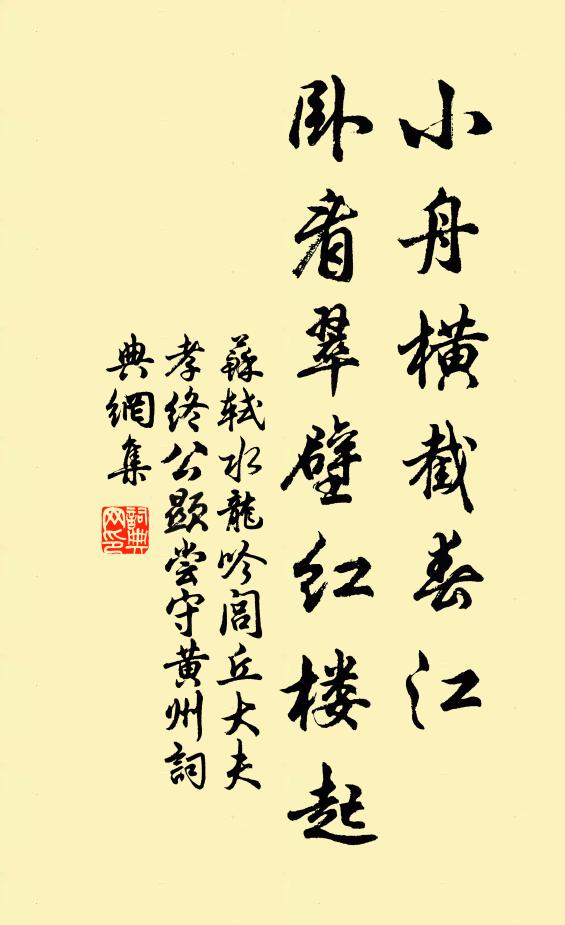 小舟橫截春江
卧看翠壁红楼起
蘇軾水龍吟閭丘大夫
孝終公顯嘗守黄州詞
典網集
詞典网印